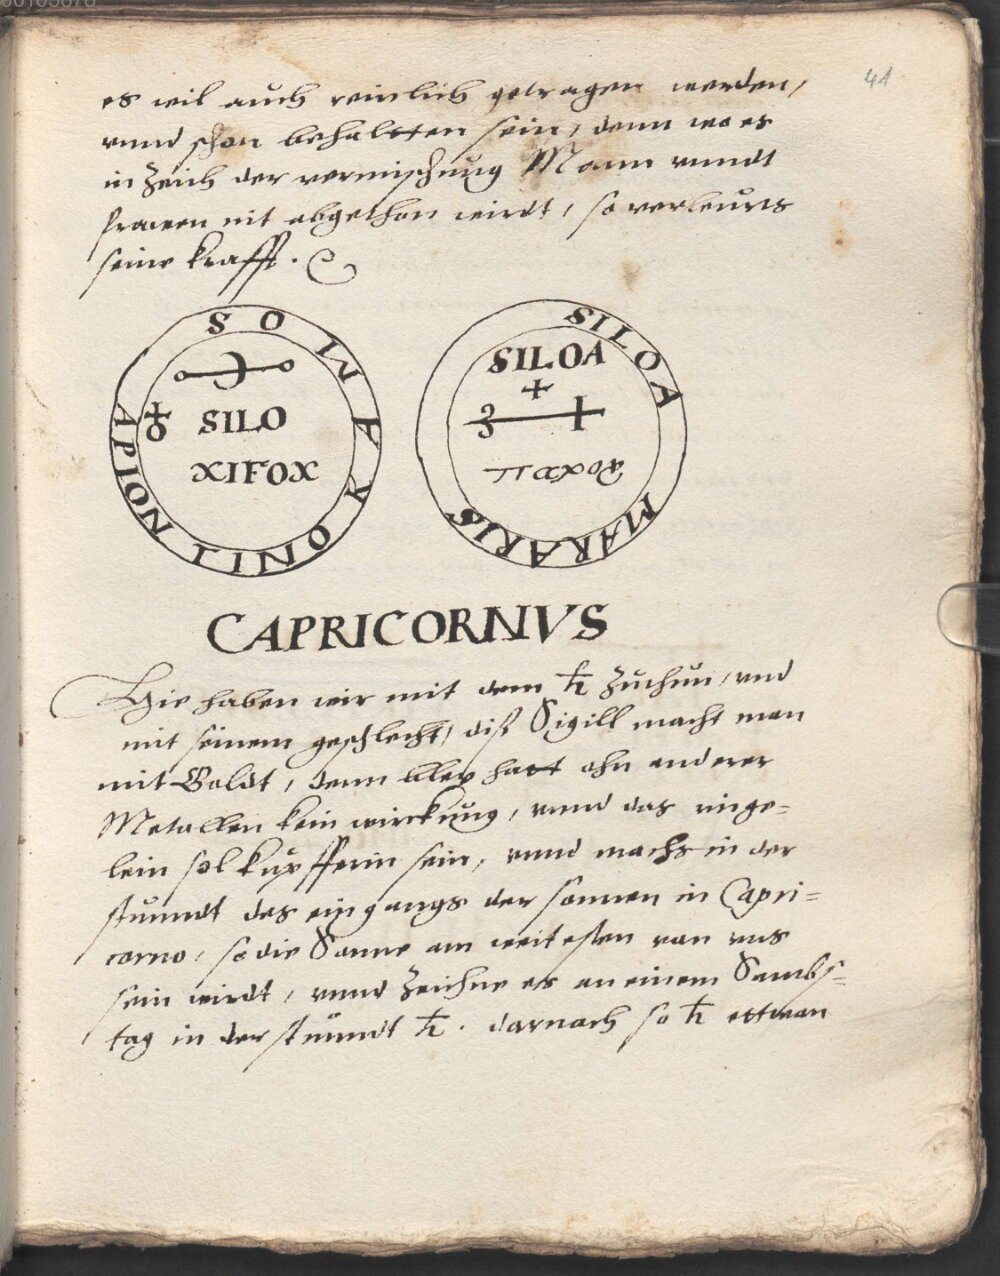 41
es wil auch reinlich getragen werden,
vnnd schon behaltten sein, denn wo es
in Zeich der vermischung Mann vnndt
frawen nit abgethan wirdt, so verleurts
seine krafft.
SOMAKONIJ NOIPA
SILO
XIFOX
SILOA MARARIS
SILOA
CAPRICORNVS
Hie haben wir mit dem ♄ Zuthun, vnd
mit seinem geschlecht, diß Sigill macht man
mit Goldt, denn hatt ohn anderer
Metallen kein wirckung, vnnd das ringe-
lein sol kupfferin sein, vnnd machs in der
stunndt des eingangs der sonnen in Capri=
corno, so die Sonne am weitesten von vns
sein wirdt, vnnd Zeichne es an einem Sambs=
tag in der stunndt ♄. darnach so ♄ ettwan